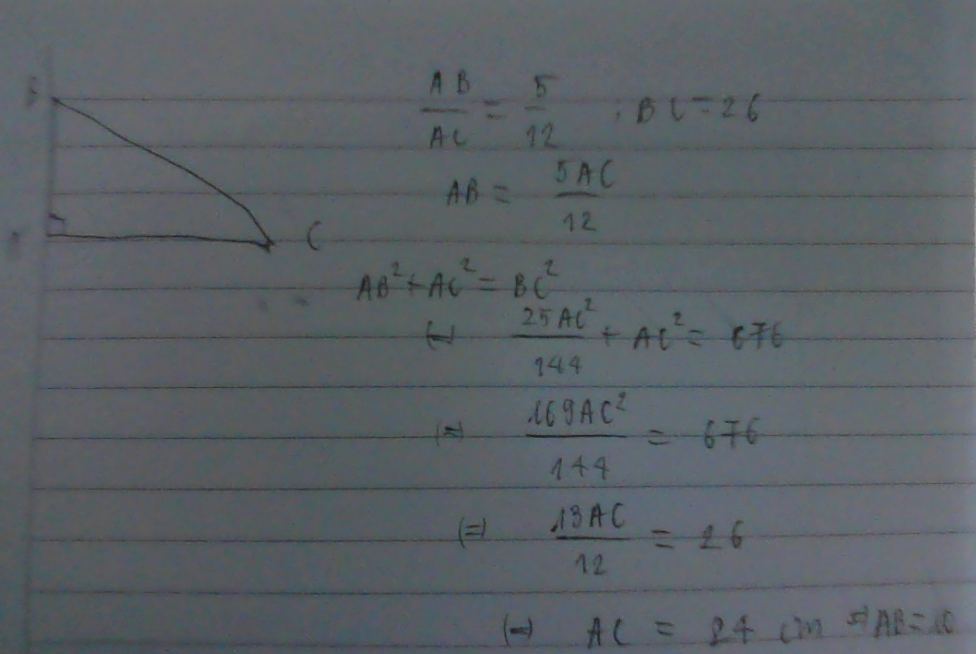 B
AB/AC = 5/12 ; BC = 26
AB = 5AC/12
C
AB² + AC² = BC²
(=) 25AC²/144 + AC² = 676
(=) 169AC²/144 = 676
(=) 13AC/12 = 26
(=) AC = 24 cm => AB = 10